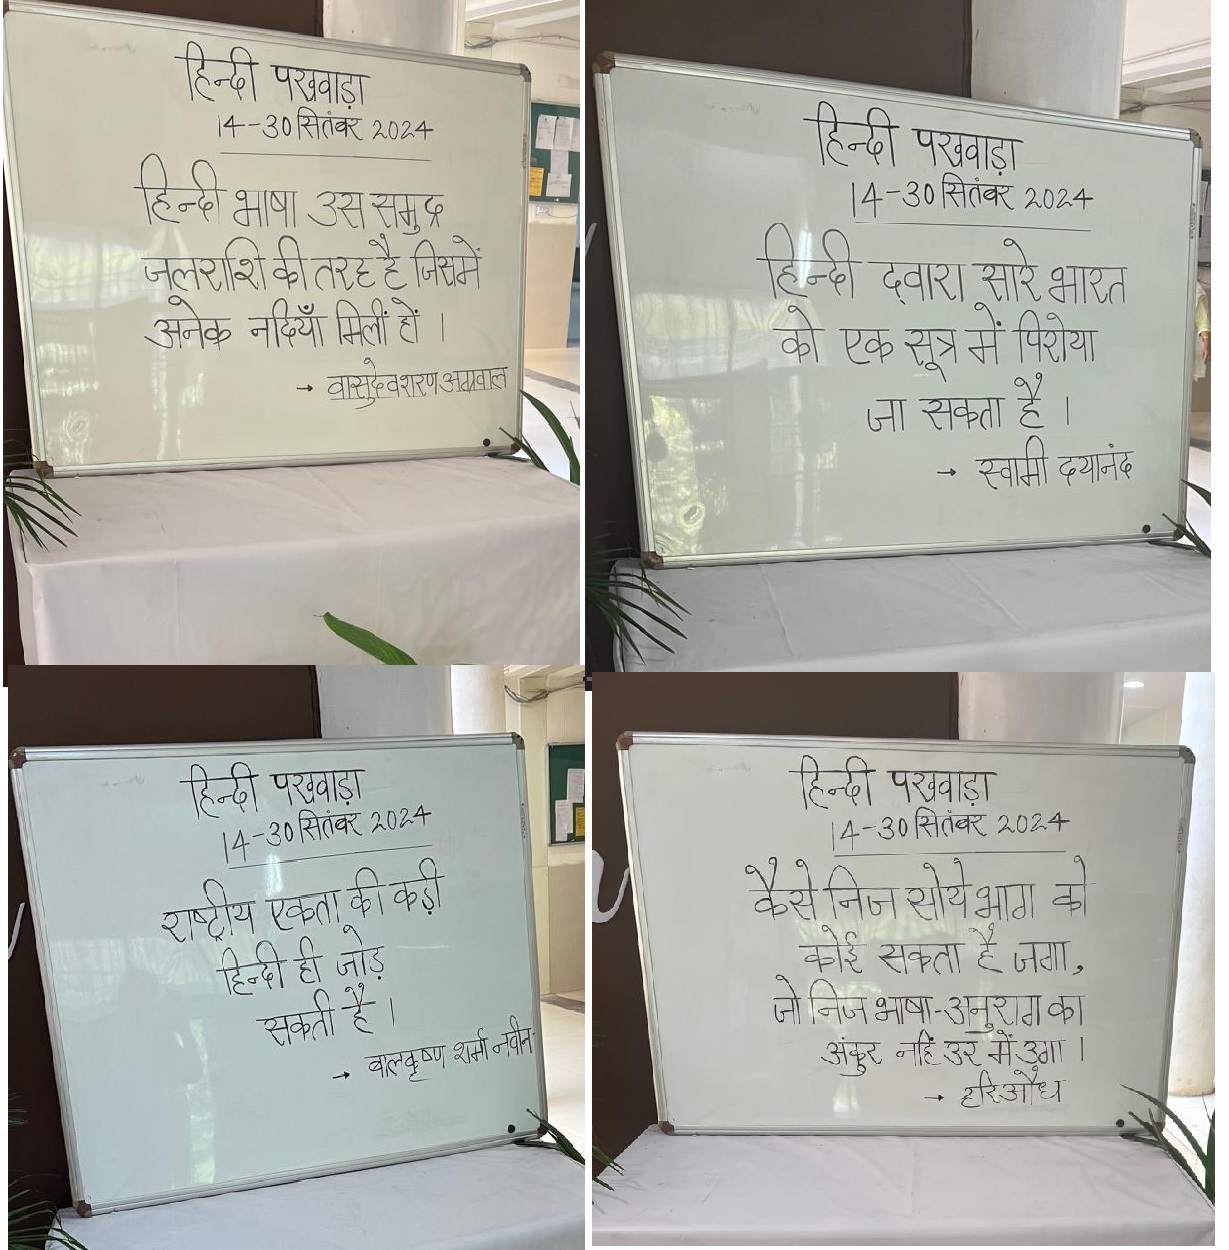 हिन्दी पखवाड़ा
14-30 सितंबर 2024
हिन्दी भाषा उस समुद्र
जलराशि की तरह है जिसमें
अनेक नदियाँ मिलीं हों ।
→ वासुदेवशरण अग्रवाल
हिन्दी पखवाड़ा
14-30 सितंबर 2024
हिन्दी द्वारा सारे भारत
को एक सूत्र में पिरोया
जा सकता है ।
→ स्वामी दयानंद
हिन्दी पखवाड़ा
14-30 सितंबर 2024
राष्ट्रीय एकता की कड़ी
हिन्दी ही जोड़
सकती है ।
→ बालकृष्ण शर्मा नवीन
हिन्दी पखवाड़ा
14-30 सितंबर 2024
कैसे निज सोये भाग को
कोई सकता है जगा,
जो निज भाषा-अनुराग का
अंकुर नहिं उर में उगा ।
→ हरिऔध